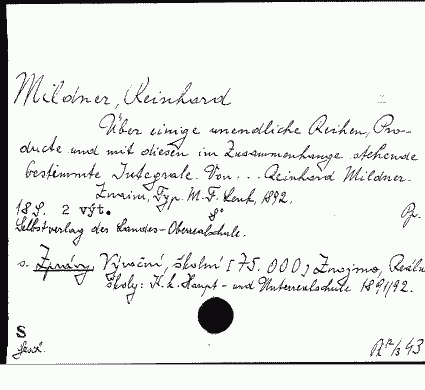 Mildner, Reinhard
Über einige unendliche Reihen, Pro-
ducte und mit diesen im Zusammenhange stehende
bestimmte Integrale. Von ... Reinhard Mildner.
Znaim, Typ. M. F. Lenk, 1892.
18 S. 2 výt. 8°
Selbstverlag der Landes-Oberrealschule.
s. Zprávy, Výroční, školní [75.000] Znojmo, Reáln
školy: K. k. Haupt- und Unterrealschule 1891/92.
S